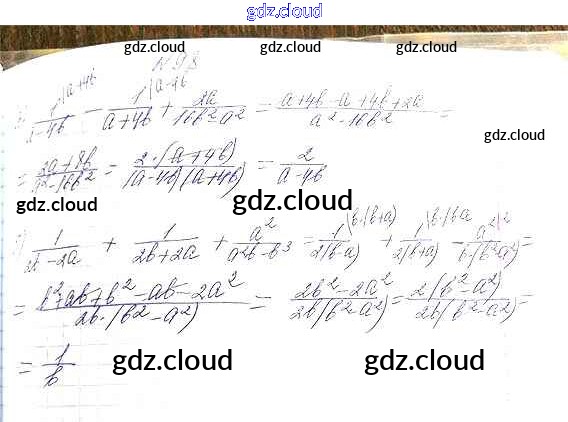 gdz.cloud
gdz.cloud gdz.cloud
1/(a-4b) - 1/(a+4b) + 2a/(16b²-a²) = (a+4b-a+4b+2a)/(a²-16b²) =
gdz.cloud
= (2a+8b)/(a²-16b²) = 2·(a+4b)/((a-4b)(a+4b)) = 2/(a-4b)
gdz.cloud gdz.cloud
1/(2b-2a) + 1/(2b+2a) + a²/(a²b-b³) = 1/(2(b-a)) + 1/(2(b+a)) - a²/(b·(b²-a²)) =
gdz.cloud
= (b²+ab+b²-ab-2a²)/(2b·(b²-a²)) = (2b²-2a²)/(2b(b²-a²)) = 2(b²-a²)/(2b(b²-a²)) =
= 1/b
gdz.cloud gdz.cloud
gdz.cloud